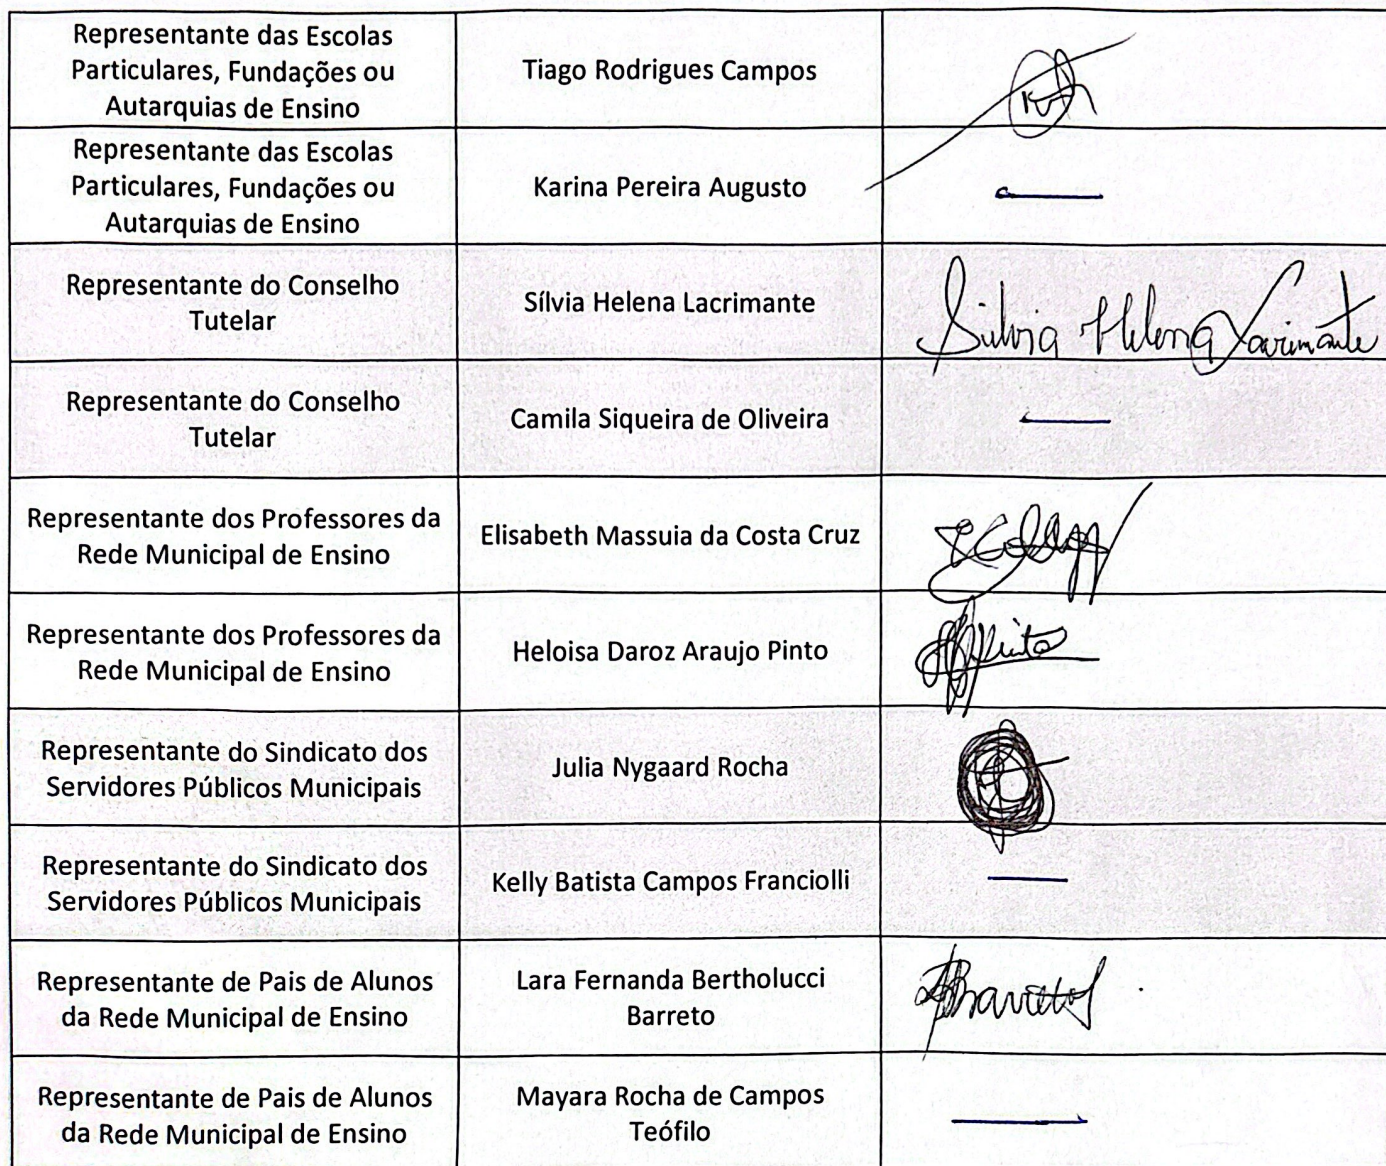 Representante das Escolas
Particulares, Fundações ou
Autarquias de Ensino
Tiago Rodrigues Campos
Representante das Escolas
Particulares, Fundações ou
Autarquias de Ensino
Karina Pereira Augusto
Representante do Conselho
Tutelar
Sílvia Helena Lacrimante
Silvia Helena Lacrimante
Representante do Conselho
Tutelar
Camila Siqueira de Oliveira
Representante dos Professores da
Rede Municipal de Ensino
Elisabeth Massuia da Costa Cruz
Representante dos Professores da
Rede Municipal de Ensino
Heloisa Daroz Araujo Pinto
Pinto
Representante do Sindicato dos
Servidores Públicos Municipais
Julia Nygaard Rocha
Representante do Sindicato dos
Servidores Públicos Municipais
Kelly Batista Campos Franciolli
Representante de Pais de Alunos
da Rede Municipal de Ensino
Lara Fernanda Bertholucci
Barreto
Representante de Pais de Alunos
da Rede Municipal de Ensino
Mayara Rocha de Campos
Teófilo